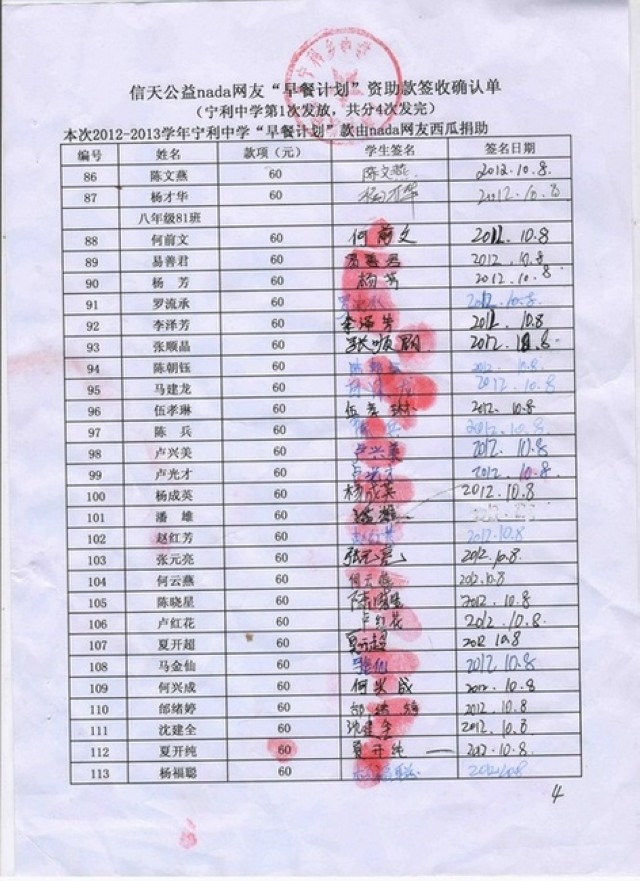 信天公益nada网友“早餐计划”资助款签收确认单
（宁利中学第1次发放，共分4次发完）
本次2012-2013学年宁利中学“早餐计划”款由nada网友西瓜捐助
编号 姓名 款项（元） 学生签名 签名日期
86 陈文燕 60 陈文燕 2012.10.8.
87 杨才华 60 杨才华 2012.10.8
八年级81班
88 何前文 60 何前文 2012.10.8
89 易善君 60 易善君 2012.10.8
90 杨 芳 60 杨芳 2012.10.8
91 罗流承 60 罗流承 2012.10.8.
92 李泽芳 60 李泽芳 2012.10.8
93 张顺晶 60 张顺晶 2012.10.8
94 陈朝钰 60 2012.10.8.
95 马建龙 60 2012.10.8
96 伍孝琳 60 伍孝琳 2012.10.8
97 陈 兵 60 陈兵 2012.10.8
98 卢兴美 60 卢兴美 2012.10.8
99 卢光才 60 卢光才 2012.10.8
100 杨成英 60 杨成英 2012.10.8
101 潘 雄 60 潘雄
102 赵红芳 60 2012.10.8
103 张元亮 60 张元亮 2012.10.8
104 何云燕 60 何云燕 2012.10.8
105 陈晓星 60 陈晓星 2012.10.8
106 卢红花 60 卢红花 2012.10.8
107 夏开超 60 夏开超 2012.10.8
108 马金仙 60 2012.10.8
109 何兴成 60 何兴成 2012.10.8
110 邰绪婷 60 2012.10.8
111 沈建全 60 沈建全 2012.10.8
112 夏开纯 60 夏开纯 2012.10.8
113 杨福聪 60
4